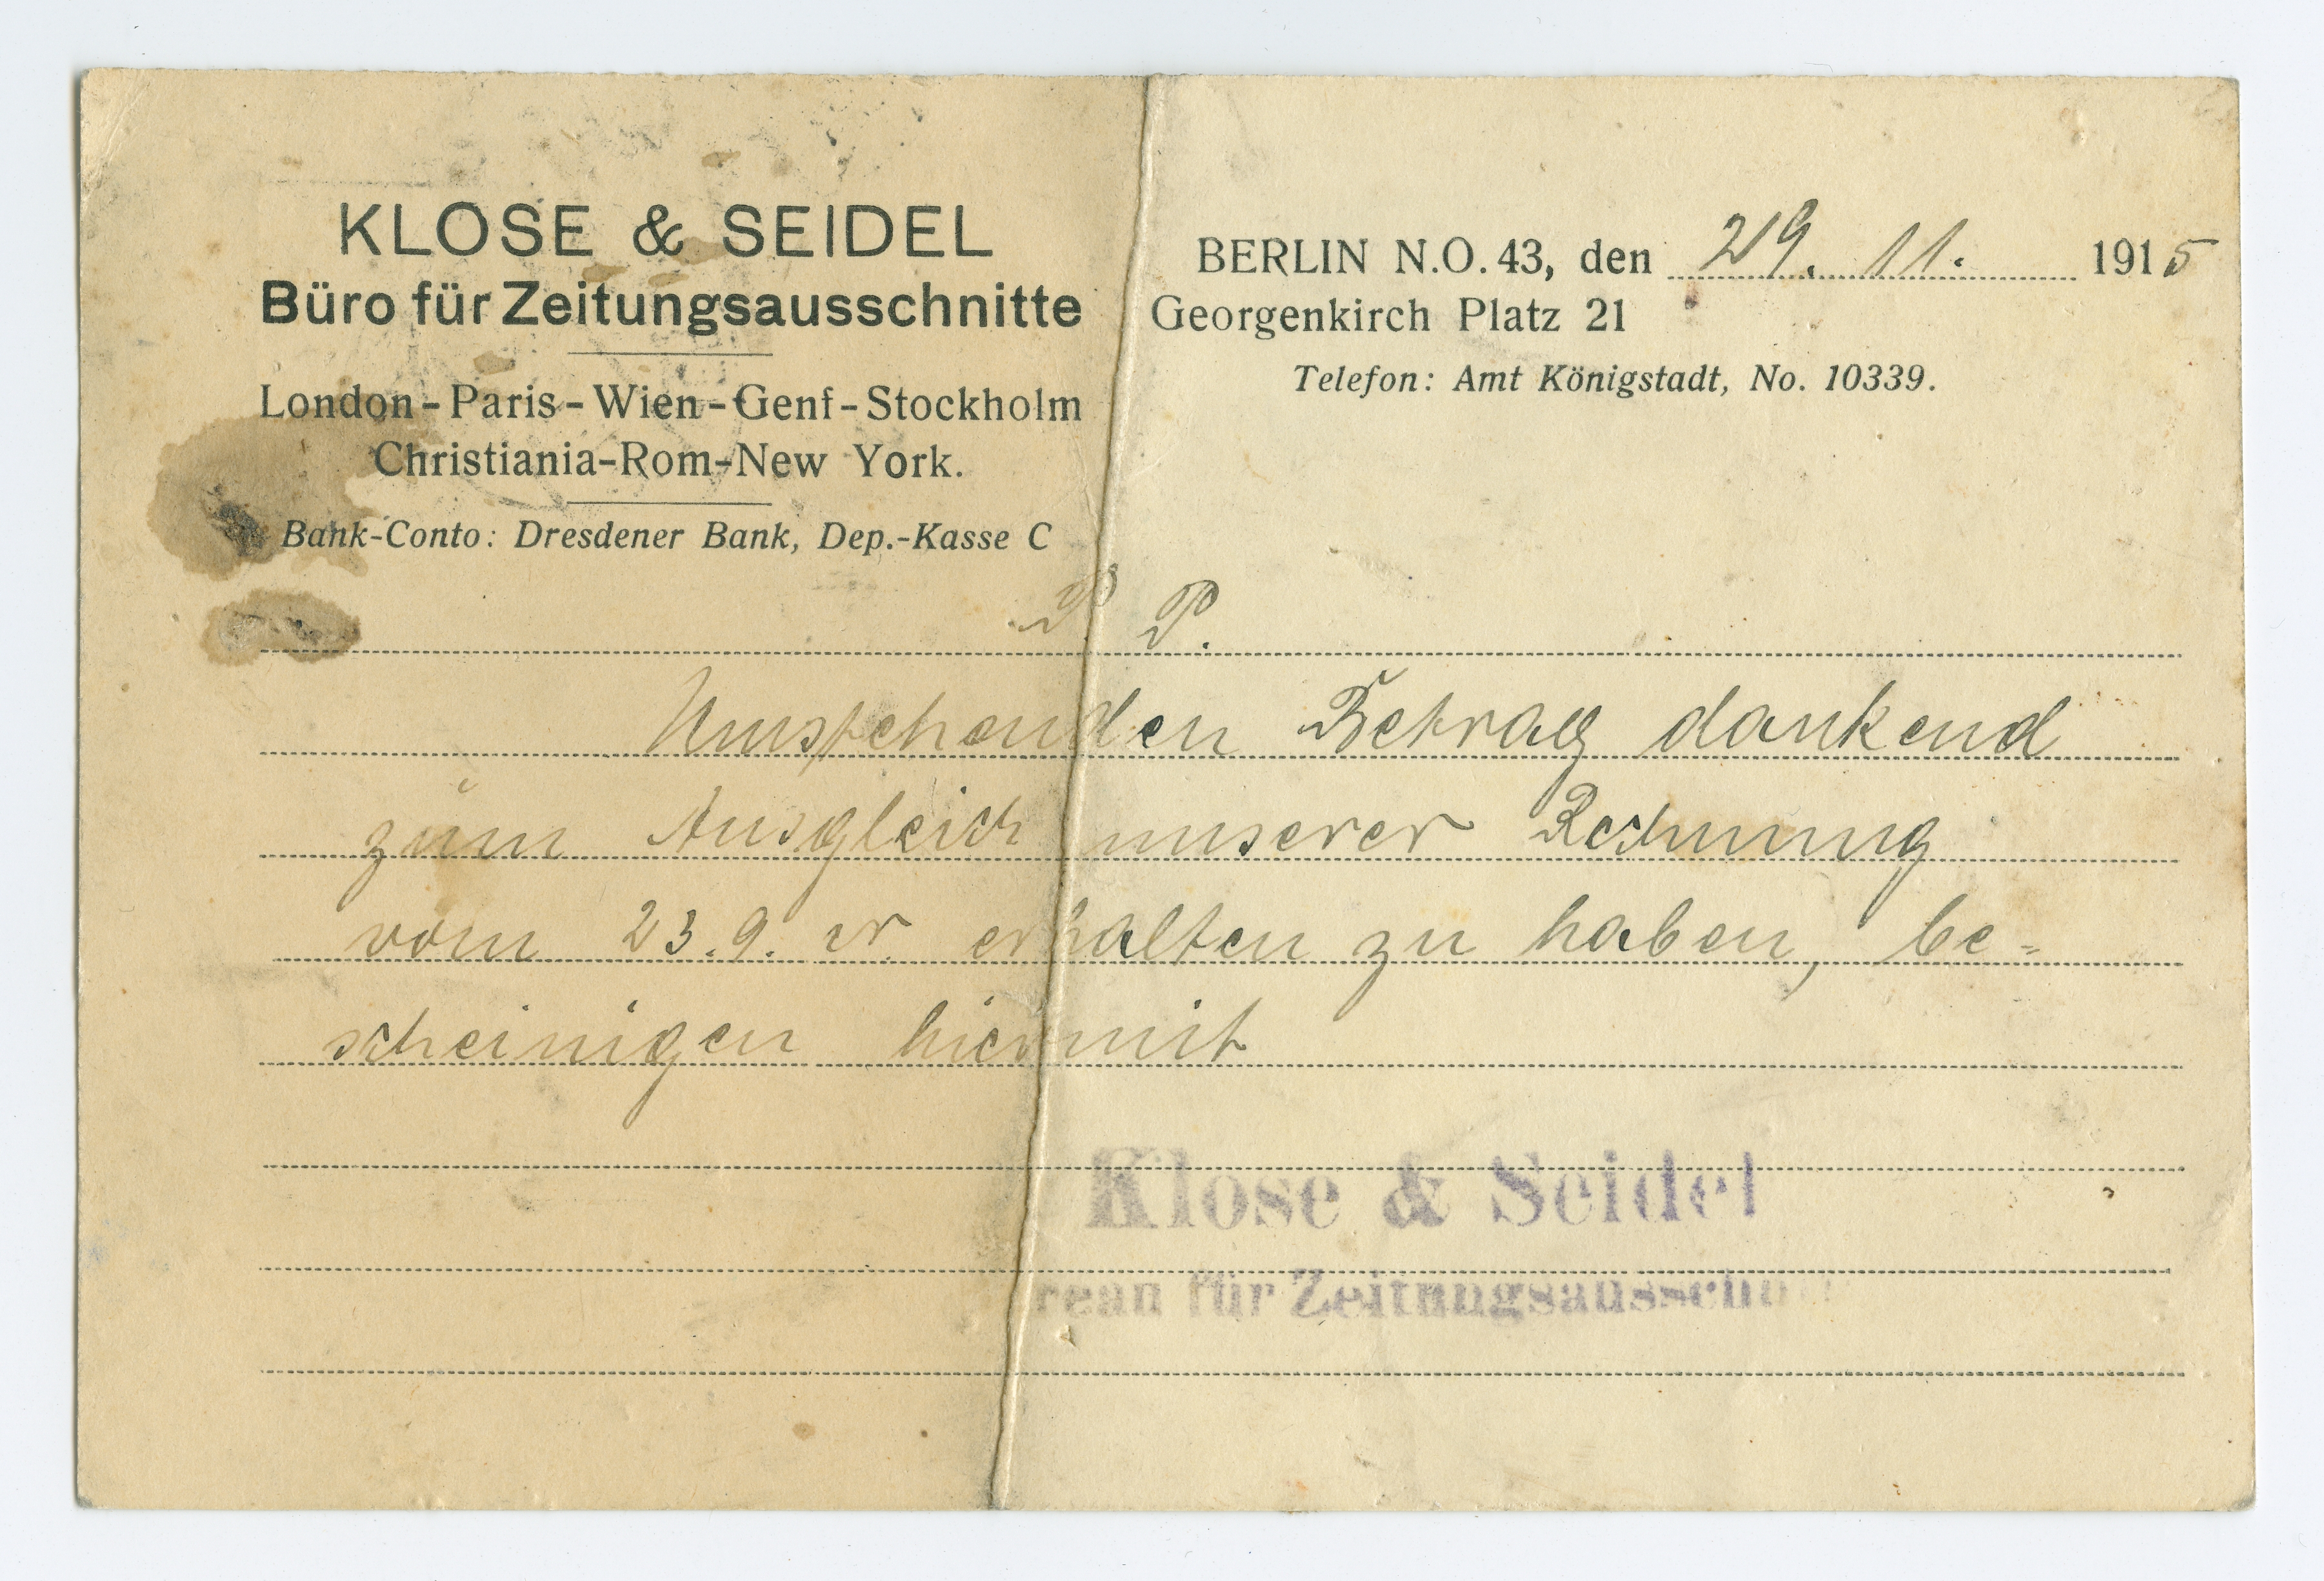 KLOSE & SEIDEL
Büro für Zeitungsausschnitte
London-Paris-Wien-Genf-Stockholm
Christiania-Rom-New York.
Bank-Conto: Dresdener Bank, Dep.-Kasse C
BERLIN N.O. 43, den 29. 11. 1915
Georgenkirch Platz 21
Telefon: Amt Königstadt, No. 10339.
P. P.
Umstehenden Betrag dankend
zum Ausgleich unserer Rechnung
vom 23.9. cr. erhalten zu haben, be=
scheinigen hiermit
Klose & Seidel
reau für Zeitungsausschn